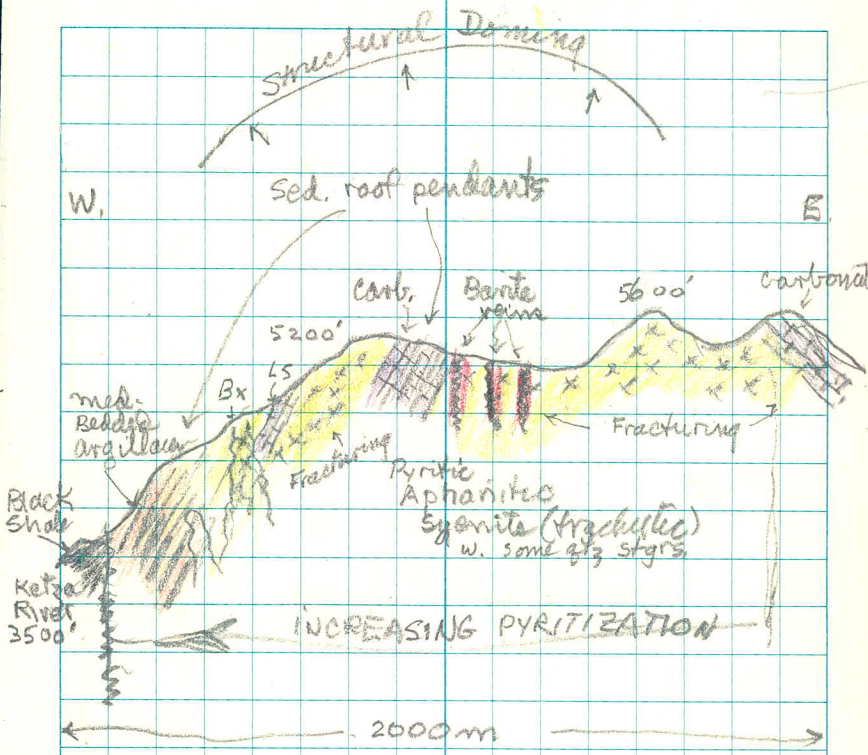 Structural Doming
W.
Sed. roof pendants
E.
Carb.
Barite
veins
5600'
Carbonat
5200'
LS
Bx
med-
Bedded
argillaceous
Fracturing
Fracturing
Pyritic
Aphanitic
Syenite (trachytic)
w. some qtz stgrs.
Black
Shale
Ketza
River
3500'
INCREASING PYRITIZATION
2000m